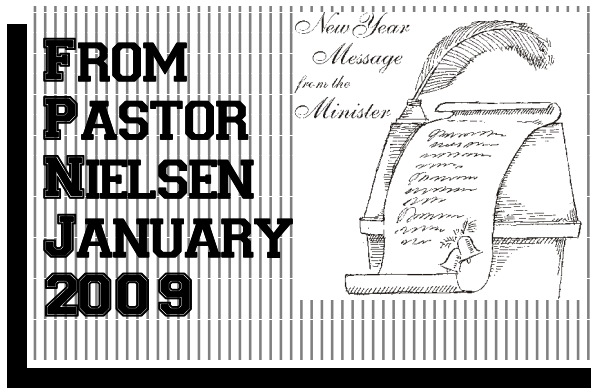 FROM
PASTOR
NIELSEN
JANUARY
2009
New Year
Message
from the
Minister